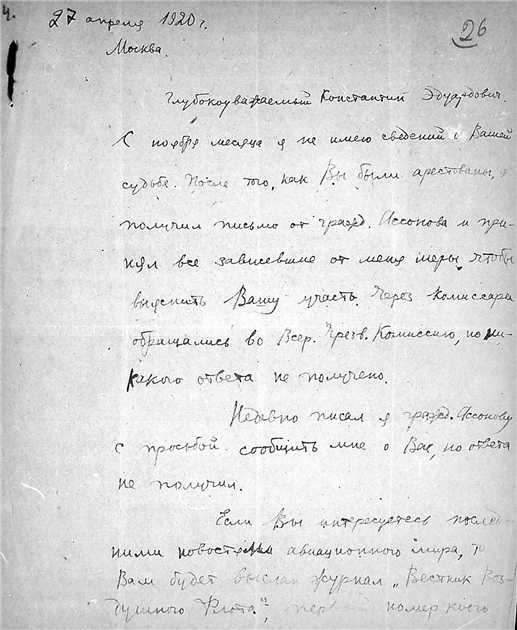 4.
27 апреля 1920 г.
26
Москва.
Глубокоуважаемый Константин Эдуардович.
С ноября месяца я не имею сведений о Вашей
судьбе. После того, как Вы были арестованы, я
получил письмо от гражд. Ассонова и при-
нял все зависевшие от меня меры, чтобы
выяснить Вашу участь. Через комиссара
обращались во Всер. Чрезв. Комиссию, но ни-
какого ответа не получено.
Недавно писал я гражд. Ассонову
с просьбой сообщить мне о Вас, но ответа
не получил.
Если Вы интересуетесь послед-
ними новостями авиационного мира, то
Вам будет выслан журнал „Вестник Воз-
душного Флота", первый номер коего